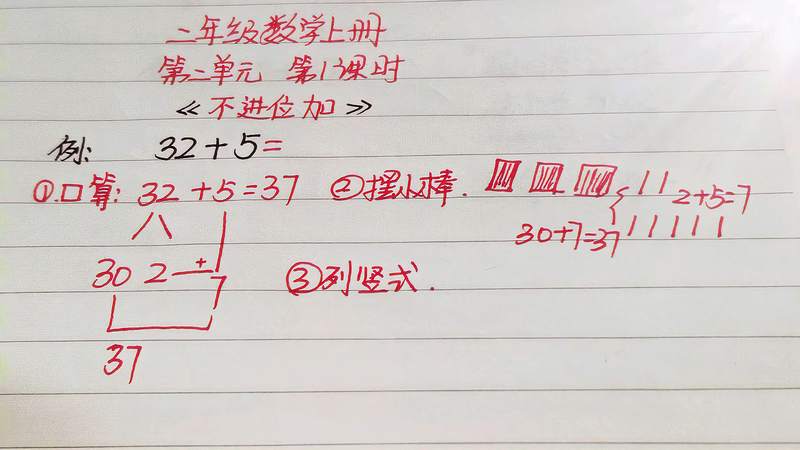 二年级数学上册
第二单元 第1课时
《不进位加》
例: 32+5=
①.口算: 32+5=37 ②摆小棒. 2+5=7
30+7=37
30 2 + 7
③列竖式.
37